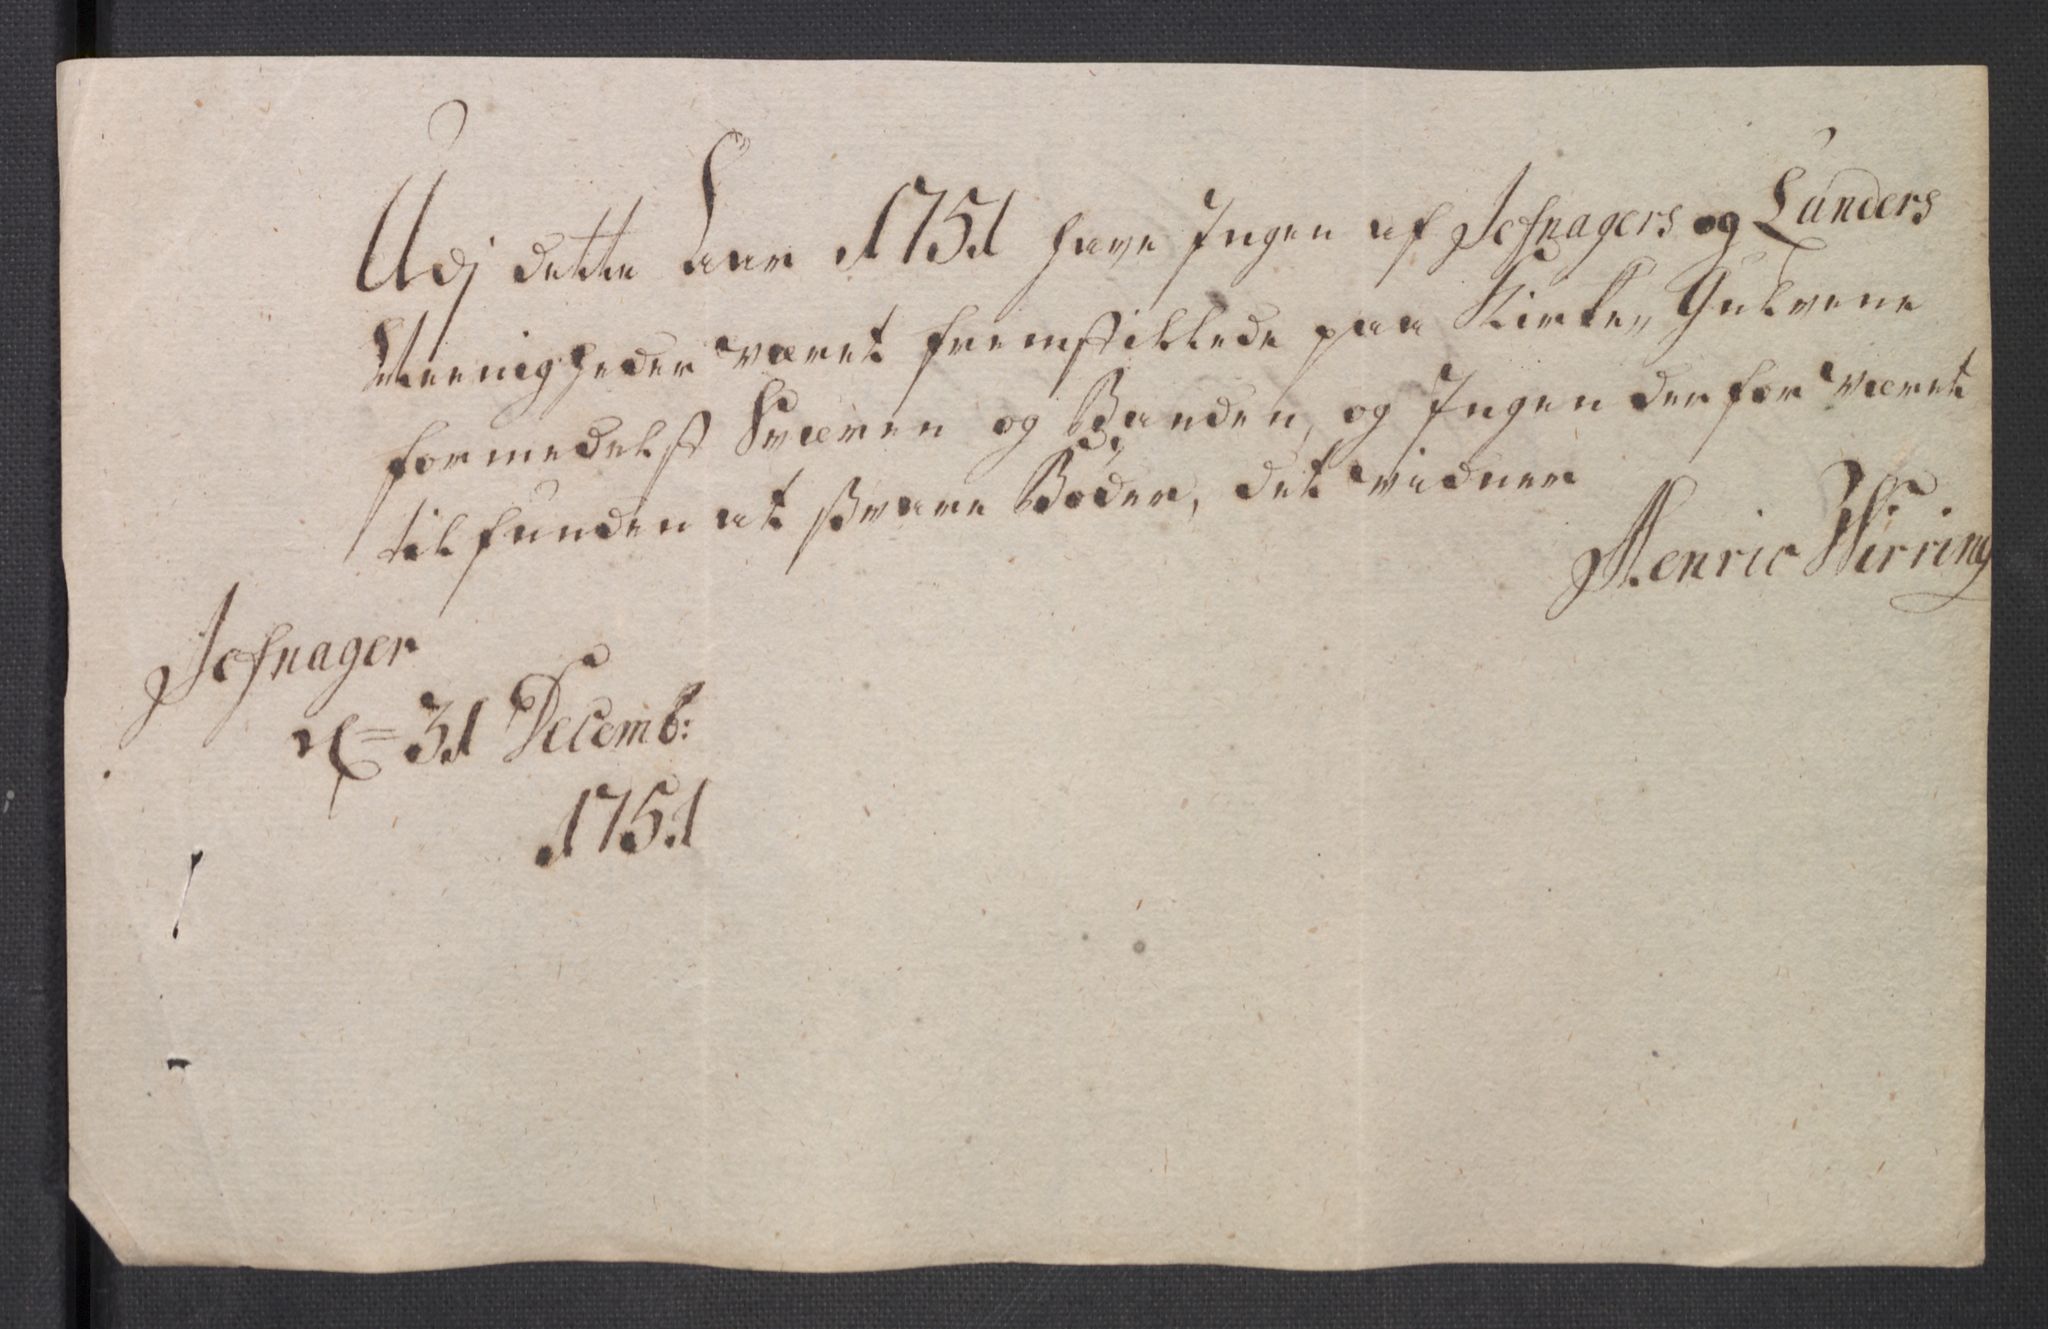 Udj dette Aar 1751 have Ingen af Jesnagers og Lunders
Meenigheder været fremstillede paa Kirke, Gulvene
formedelst Sværen og Banden, og Ingen derfor været
tilfunden at svare Bøder, det vidner
Henric Wirring
Jesnager
d= 31 Decemb:
1751